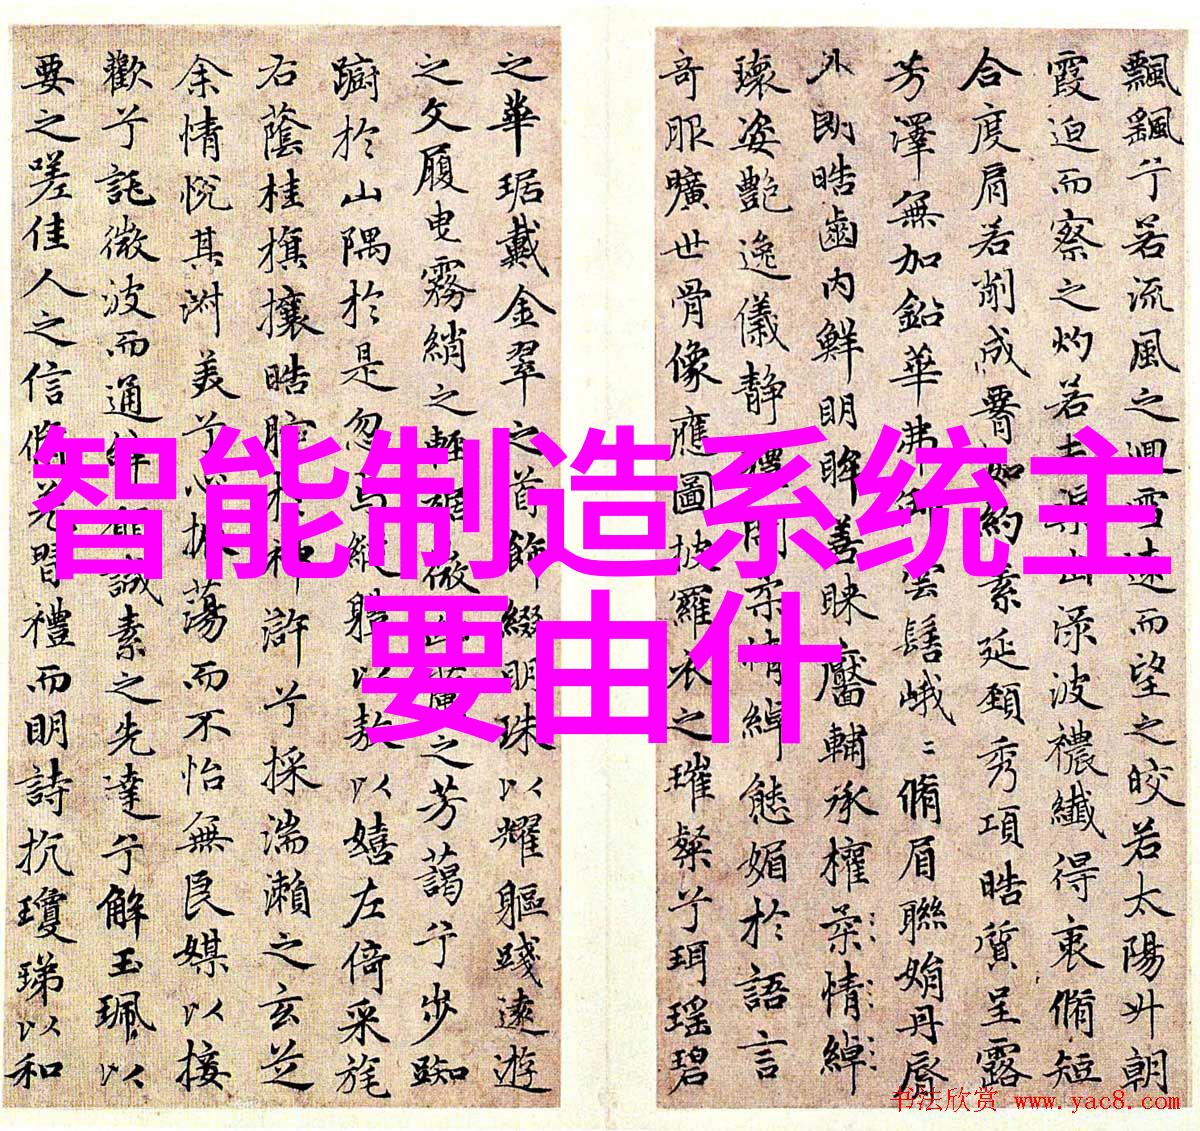 智能制造系统主
要由什
飄飖兮若流風之迴雪遠而望之皎若太陽升朝
霞迫而察之灼若夫渠出淥波穠纖得衷脩短
合度肩若削成腰如約素延頸秀項皓質呈露
芳澤無加鉛華弗御雲髻峨﹕脩眉聯娟丹脣
外朗皓齒內鮮明眸善睞靨輔承權柔情綽
瓌姿艷逸儀靜體閑柔情綽態媚於語言
奇服曠世骨像應圖披羅衣之璀粲兮珥瑤碧
之華琚戴金翠之首飾綴明珠以耀軀踐遠遊
之文履曳霧綃之輕裾微幽蘭之芳藹兮步踟
躕於山隅於是忽焉縱體以遨以嬉左倚采旄
右蔭桂旗攘皓腕於神滸兮採湍瀨之玄芝
余情悅其淑美兮心振蕩而不怡無良媒以接
歡兮託微波而通辭願誠素之先達兮解玉珮以
要之嗟佳人之信脩羌習禮而明詩抗瓊珶以和
书法欣赏 www.yac8.com